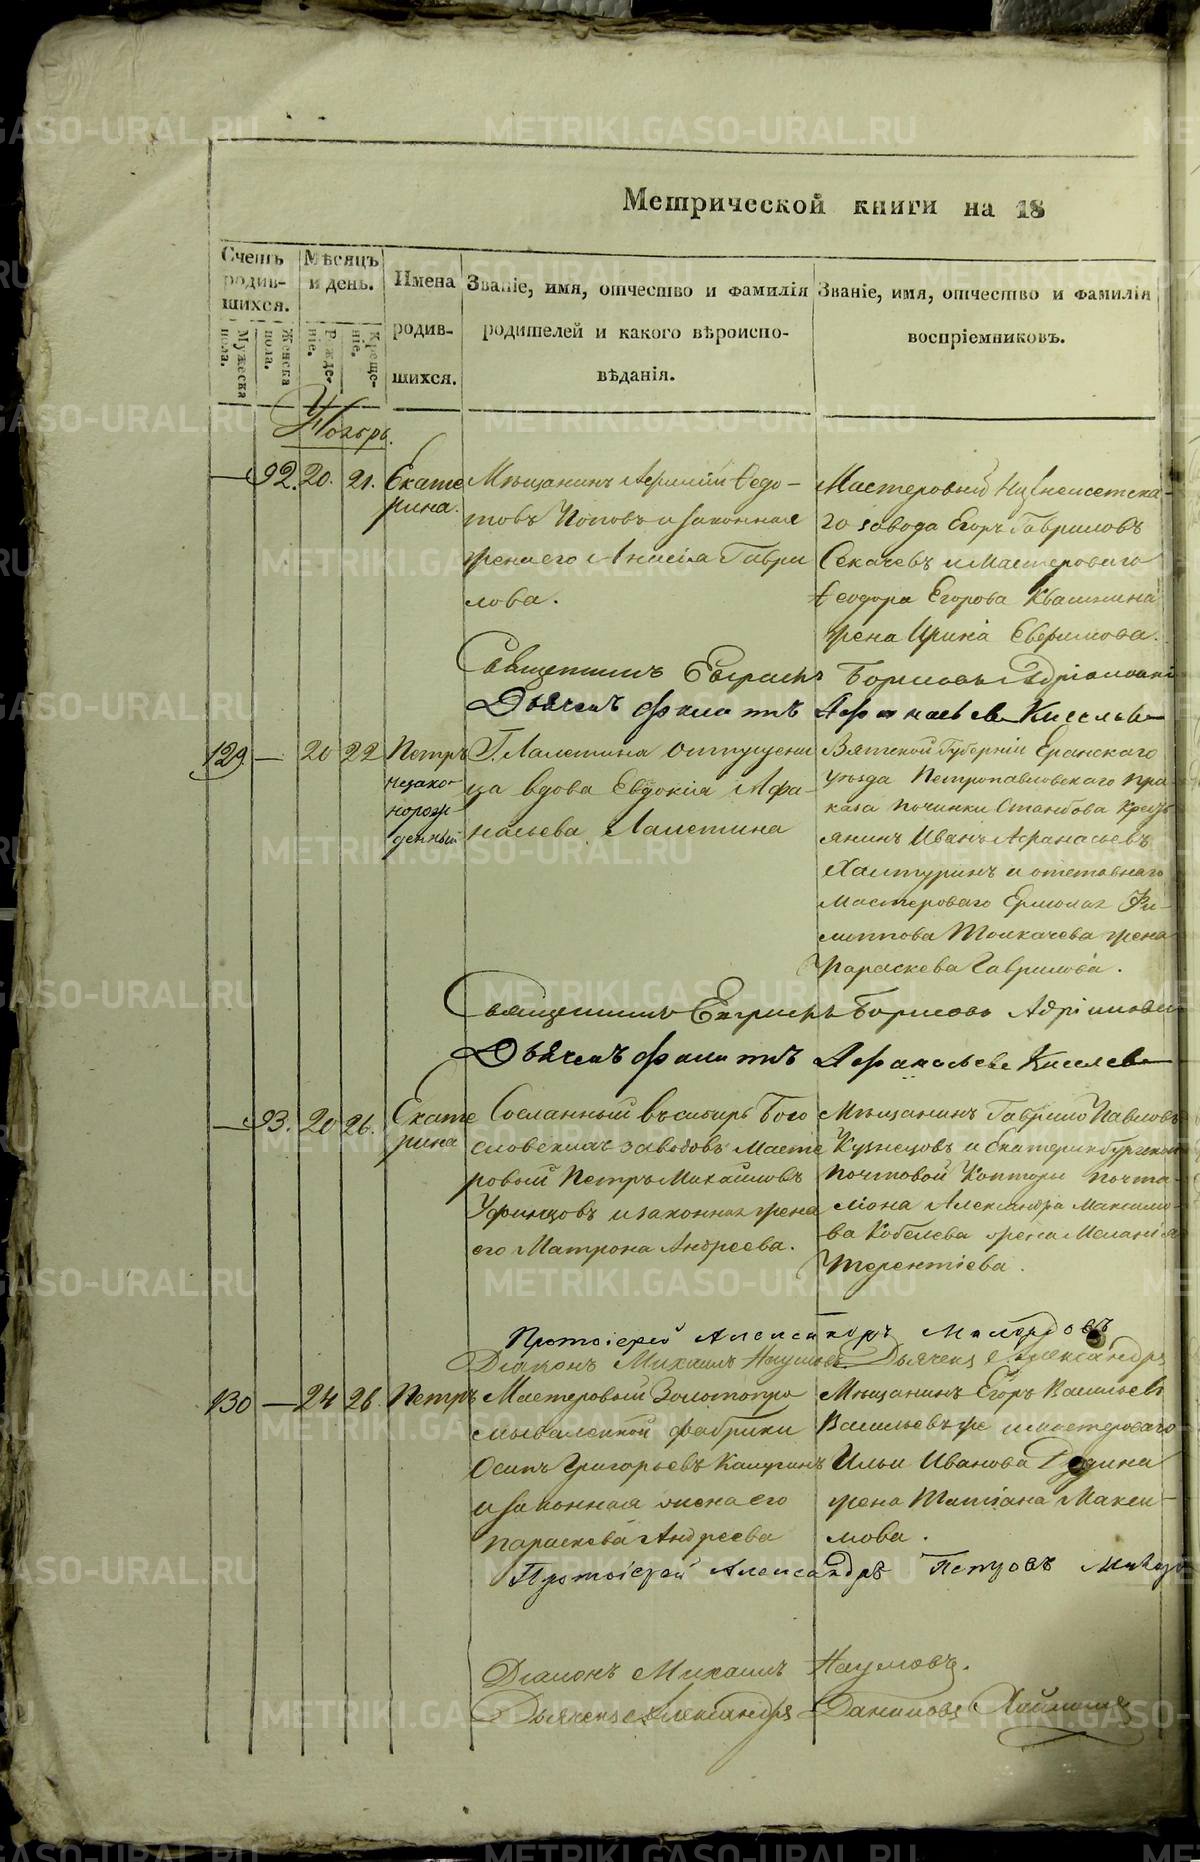 Метрической книги на 18
Счетъ родив-шихся.
Мѣсяцъ и день.
Имена родив-шихся.
Званіе, имя, отчество и фамилія родителей и какого вѣроиспо-вѣданія.
Званіе, имя, отчество и фамилія воспріемниковъ.
Мужеска пола.
Женска пола.
Рожде-ніе.
Креще-ніе.
Ноябрь.
— 92. 20. 21. Екате
рина.
Мѣщанинъ Ѳедо-
товъ Поповъ и законная
жена его Анисія Гаври
лова.
Мастеровый Нижнеисетска-
го завода Егоръ Гавриловъ
Секачевъ и Мастероваго
Ѳеодора Егорова Квашнина
жена Ирина Евфимова.
Священникъ Евграфъ Борисовъ
Дьячекъ Филиппъ Афанасьевъ Киселевъ
129 — 20 22 Петръ
незако-
норож-
денный
Г. Лапетина отпущени
ца вдова Евдокія Афа-
насьева Лапетина
Вятской Губерніи Еранскаго
уѣзда Петропавловскаго при
каза починки Кресть
янинъ Иванъ Афанасьевъ
Халтуринъ и отставнаго
Мастероваго Ермолая Фи-
липпова Толкачева жена
Параскева Гаврилова.
Священникъ Евграфъ Борисовъ
Дьячекъ Филиппъ Афанасьевъ Киселевъ
— 93. 20 26. Екате
рина
Сосланный въ сибирь Бого
словскихъ заводовъ Масте
ровый Петръ Михайловъ
Уфинцовъ и законная жена
его Матрона Андреева.
Мѣщанинъ Гаврило Павловъ
Кузнецовъ и Екатеринбургской
почтовой Конторы почта-
ліона Александра Максимо-
ва Кобелева жена Меланія
Терентіева.
Протоіерей Александръ
Діаконъ Михаилъ Наумовъ. Дьячекъ Александръ
130 — 24 26. Петръ
Мастеровый Золотопро
мывательной фабрики
Осипъ Григорьевъ Калугинъ
и законная жена его
Параскева Андреева
Мѣщанинъ Егоръ Васильевъ
Васильевъ же и мастероваго
Ильи Иванова Дудина
жена Татіана Макси-
мова.
Протоіерей Александръ Петровъ
Діаконъ Михаилъ Наумовъ.
Дьячекъ Александръ Даниловъ
METRIKI.GASO-URAL.RU